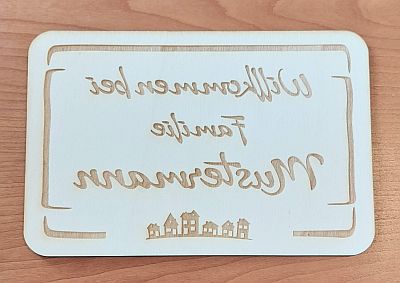 Willkommen bei
Familie
Mustermann